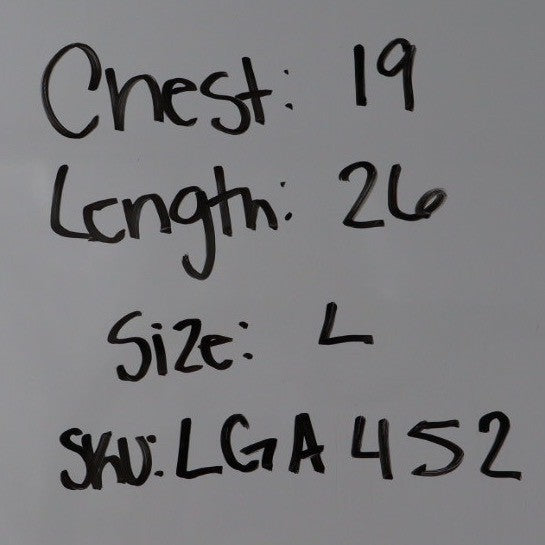 Chest: 19
Length: 26
Size: L
SKU: LGA452